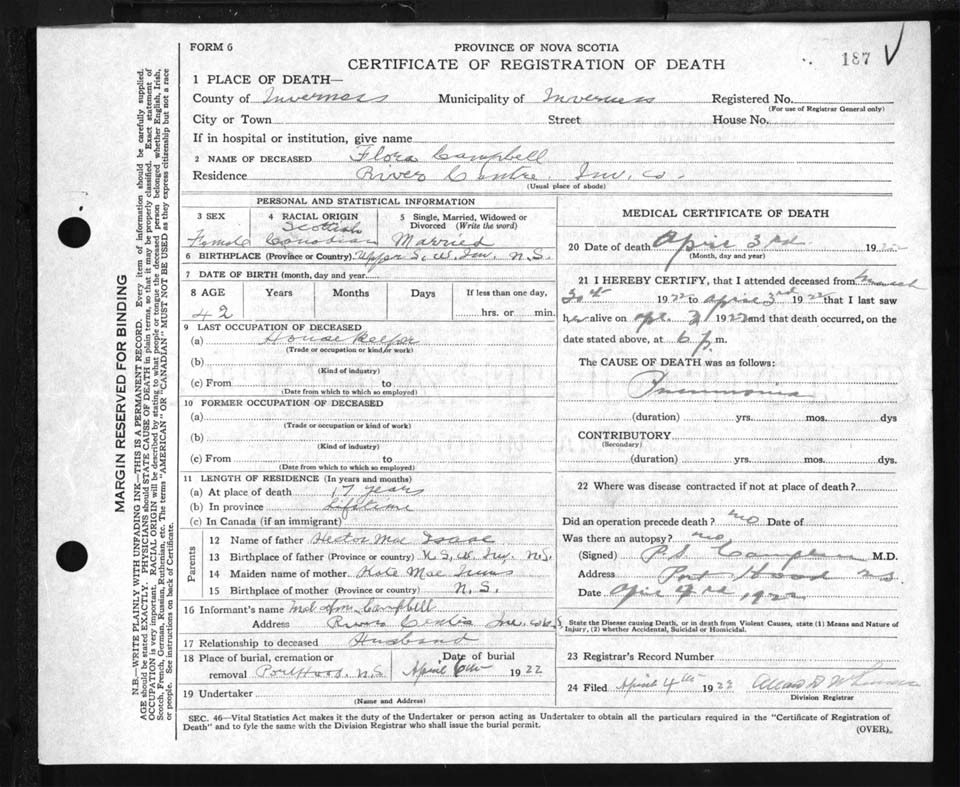 FORM 6
PROVINCE OF NOVA SCOTIA
187
CERTIFICATE OF REGISTRATION OF DEATH
1 PLACE OF DEATH—
County of Inverness Municipality of Inverness Registered No.
(For use of Registrar General only)
City or Town Street House No.
If in hospital or institution, give name
2 NAME OF DECEASED Flora Campbell
Residence River Centre Inv. Co.
(Usual place of abode)
PERSONAL AND STATISTICAL INFORMATION
3 SEX 4 RACIAL ORIGIN 5 Single, Married, Widowed or Divorced (Write the word)
Female Scottish Canadian Married
6 BIRTHPLACE (Province or Country) Upper S. W. Inv. N.S.
7 DATE OF BIRTH (month, day and year
8 AGE Years Months Days If less than one day,
42 hrs. or min.
9 LAST OCCUPATION OF DECEASED
(a) House
(Trade or occupation or kind or work)
(b)
(Kind of industry)
(c) From to
(Date from which to which so employed)
10 FORMER OCCUPATION OF DECEASED
(a)
(Trade or occupation or kind of work)
(b)
(Kind of industry)
(c) From to
(Date from which to which so employed)
11 LENGTH OF RESIDENCE (In years and months)
(a) At place of death 17 years
(b) In province Lifetime
(c) In Canada (if an immigrant)
Parents
12 Name of father Hector Mac Isaac
13 Birthplace of father (Province or country) S. W. Inv. N.S.
14 Maiden name of mother Kate Mac
15 Birthplace of mother (Province or country) N.S.
16 Informant's name Campbell
Address River Centre Inv. Co. N.S
17 Relationship to deceased Husband
18 Place of burial, cremation or Date of burial
removal Port Hood. N.S. April 6th 1922
19 Undertaker
(Name and Address)
MEDICAL CERTIFICATE OF DEATH
20 Date of death April 3rd 1922
(Month, day and year)
21 I HEREBY CERTIFY, that I attended deceased from March
30th 1922 to April 3rd 1922 that I last saw
her alive on Apr. 3 1922 and that death occurred, on the
date stated above, at 6 p. m.
The CAUSE OF DEATH was as follows:
Pneumonia
(duration) yrs. mos. dys
CONTRIBUTORY
(Secondary)
(duration) yrs. mos. dys.
22 Where was disease contracted if not at place of death?
Did an operation precede death? no Date of
Was there an autopsy? no
(Signed) P.S. Campbell M.D.
Address Port Hood N.S.
Date April 4th 1922
State the Disease causing Death, or in death from Violent Causes, state (1) Means and Nature of
Injury, (2) whether Accidental, Suicidal or Homicidal.
23 Registrar's Record Number
24 Filed April 4th 1922
Division Registrar
SEC. 46—Vital Statistics Act makes it the duty of the Undertaker or person acting as Undertaker to obtain all the particulars required in the "Certificate of Registration of
Death" and to fyle the same with the Division Registrar who shall issue the burial permit.
(OVER).
MARGIN RESERVED FOR BINDING
N.B.—WRITE PLAINLY WITH UNFADING INK—THIS IS A PERMANENT RECORD. Every item of information should be carefully supplied.
AGE should be stated EXACTLY. PHYSICIANS should STATE CAUSE OF DEATH in plain terms, so that it may be properly classified. Exact statement of
OCCUPATION is very important. RACIAL ORIGIN will be described by stating to what people or tongue the deceased person belonged whether English, Irish,
Scotch, French, German, Russian, Ruthenian, etc. The terms "AMERICAN" OR "CANADIAN" MUST NOT BE USED as they express citizenship but not a race
or people. See instructions on back of Certificate.